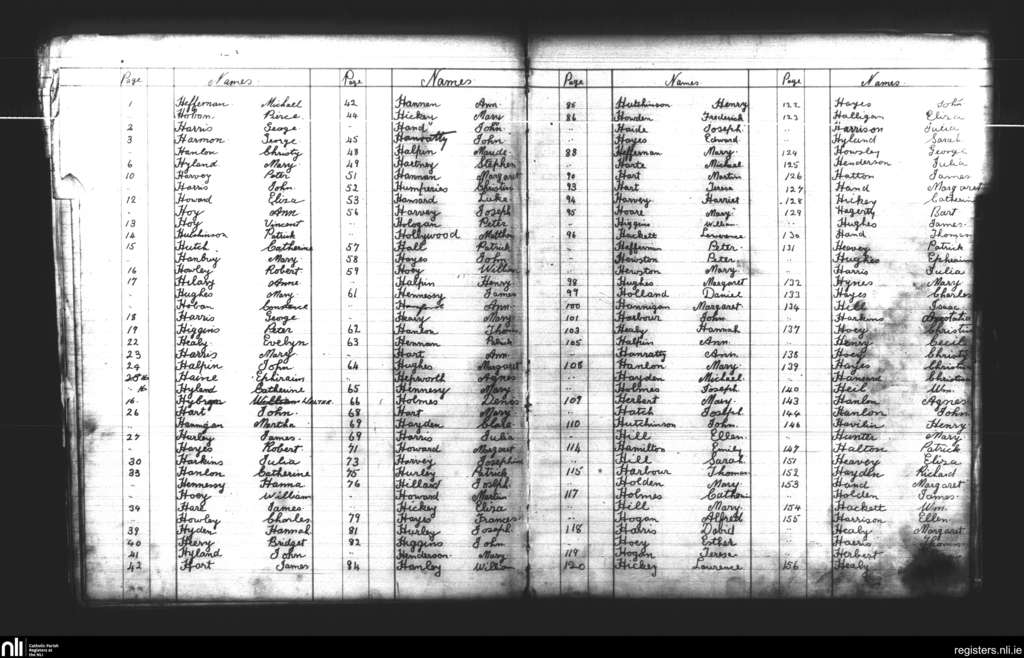 Page Names Page Names
1 Heffernan Michael 42 Hannen Ann
Pierce 44 Hickey Mary
2 Harris George " Hand John
3 Harmon George 45 Hanratty John
" Hanlon Christy 48 Halpin Maude
6 Hyland Mary 49 Hartney Stephen
10 Harvey Peter 51 Hannan Margaret
" Harris John 52 Humperies Christin
12 Howard Eliza 53 Hansard Luke
" Hoy Ann 56 Harvey Joseph
13 Hoy Vincent " Hologan Peter
14 Hutchinson Patrick " Hollywood Matthew
15 Hutch Catherine 57 Hall Patrick
" Hanbury Mary 58 Hayes John
16 Howley Robert 59 Hoey William
17 Hilary Anne Halpin Henry
" Hughes Mary 61 Hennessy James
" Hoban Constance " Ann
18 Harris George " Henry Mary
19 Higgins Peter 62 Hanlon Thom
22 Healy Evelyn 63 Hennan Patrick
23 Harris Mary " Hart Ann
24 Halpin John 64 Hughes Margaret
Haine Ephraim Hepworth Agnes
Hyland Catherine 65 Hennessy Mary
16 William Walter 66 Holmes Denis
26 Hart John 68 Hart Mary
" Hannigan Martha 69 Hayden Clare
27 Hurley James 69 Harris Julia
" Hayes Robert 71 Howard Margaret
30 Harkins Julia 73 Harvey Josephin
33 Hanlon Catherine 75 Hurley Patrick
Hennessy Hanna 76 Hillard Joseph
" Hoey William Howard Martin
34 Hare James Hickey Eliza
" Howley Charles 79 Hayes Frances
39 Hyden Hannah 81 Hurley Joseph
40 Bridget 82 Higgins John
41 Hyland John Henderson Mary
42 Hart James 84 Hanley William
Page Names Page Names
85 Hutchinson Henry 122 Hayes John
86 Howden Frederick 123 Halligan Eliza
" Haide Joseph " Harrison Julia
" Hayes Edward " Hylund Sarah
88 Heffernan Mary 124 Howsley George
" Harte Michael 125 Henderson Julia
90 Hart Martin 126 Hatton James
93 Hart Teresa 127 Hand Margaret
94 Harvey Harriet 128 Hickey Catherin
95 Hoare Mary 129 Hagerty Bart
" Higgins William " Hughes James
96 Hackett Lawrence 130 Hand Thomas
" Heffernin Peter 131 Heavey Patrick
" Hewston Peter " Hughes Ephraim
" Hewston Mary " Harris Julia
98 Hughes Margaret 132 Hynes Mary
99 Holland Daniel 133 Hayes Charles
100 Hannigan Margaret 134 Hill Susan
101 Harbour John " Harkins
103 Healy Hannah 137 Hoey Christin
105 Halpin Ann " Henry Cecil
" Hanratty Ann 138 Hoey Christy
108 Hanlon Mary 139 Hayes Christin
" Hayden Michael " Christin
" Holmes Joseph 140 Heil Wm.
109 Herbert Mary 143 Hanlon Agnes
" Hatch Joseph 144 Hanlon John
110 Hutchinson John 146 Henry
" Hill Ellen " Hunter Mary
114 Hamilton Emily 149 Halton Patrick
" Hill Sarah 151 Heavey Eliza
115 Harbour Thomas 152 Hayden Richard
" Holden Mary 153 Hand Margaret
117 Holmes Catherin " Holden James
" Hill Mary 154 Hackett Wm.
" Hogan Alfred 155 Harrison Ellen
118 Harris David " Healy Margaret
" Hoey Esther " Harris Thomas
119 Hogan Terese " Herbert
120 Hickey Lawrence 156 Healy
nli Catholic Parish Registers at the NLI
registers.nli.ie